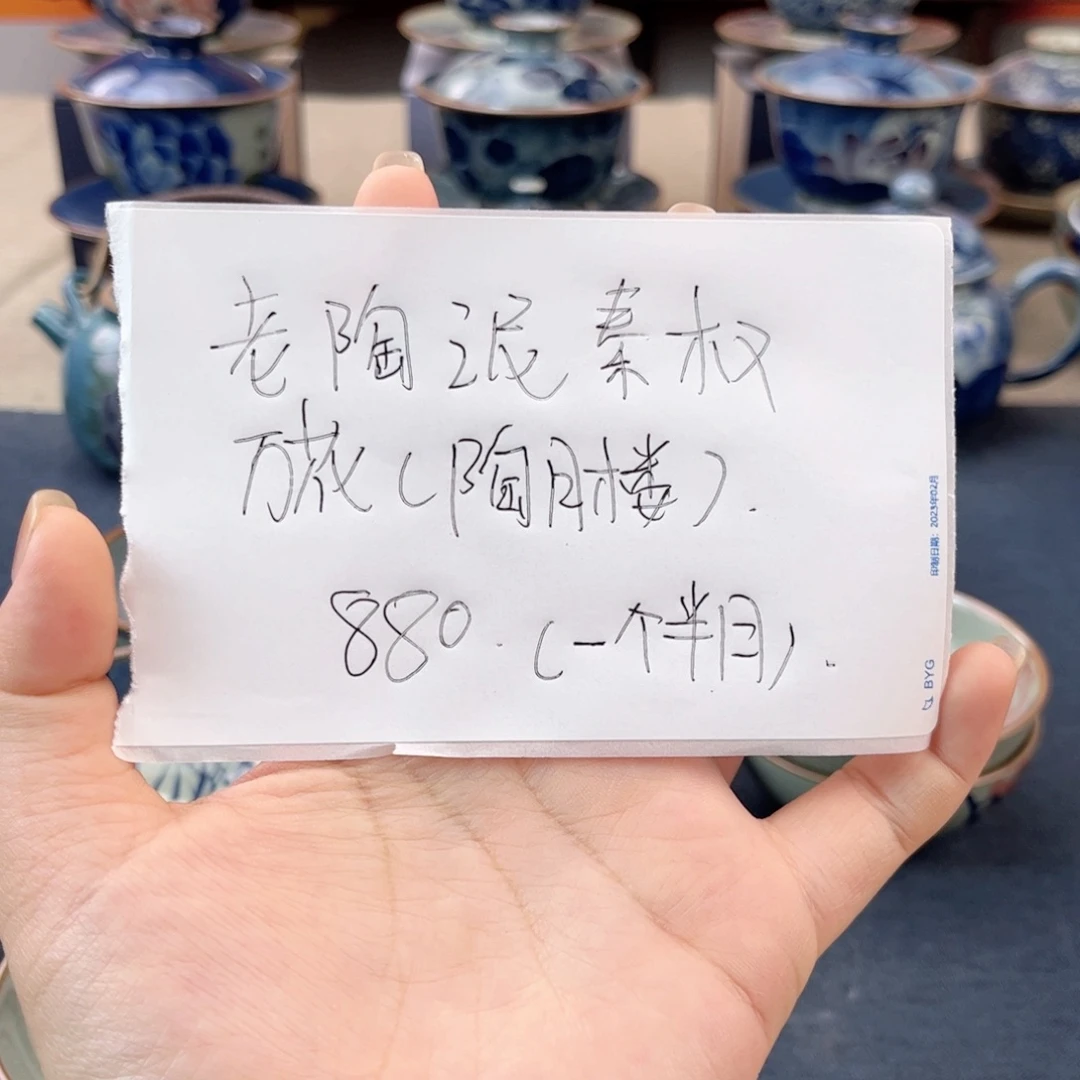 老陶泥秦权
万花(陶月楼).
880.(一个半月).
印制日期: 2023年02月
BYG